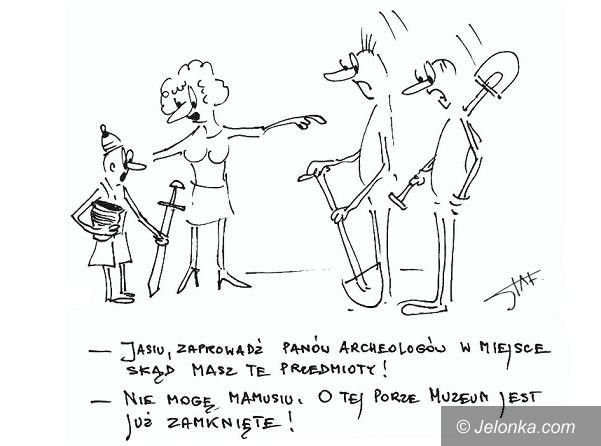 — JASIU, ZAPROWADŹ PANÓW ARCHEOLOGÓW W MIEJSCE
SKĄD MASZ TE PRZEDMIOTY!
— NIE MOGĘ MAMUSIU. O TEJ PORZE MUZEUM JEST
JUŻ ZAMKNIĘTE!
© Jelonka.com